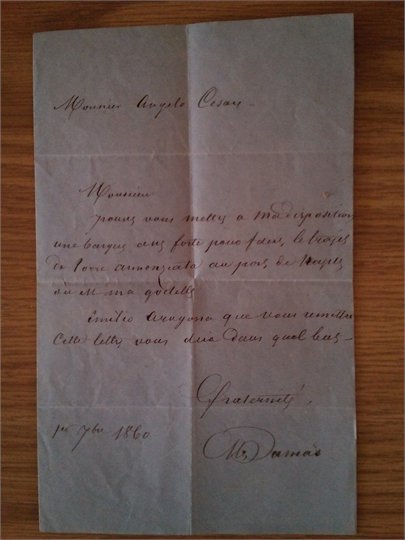 Monsieur Angelo Cesari
Monsieur
pouvez vous mettre a ma disposition
une barque assez forte pour faire le trajet
de Torre annonziata au port de Naples
où est ma goelette
Emilio Aragona que vous remettra
cette lettre vous dira dans quel but –
fraternité.
1er 7bre 1860
Alx Dumas